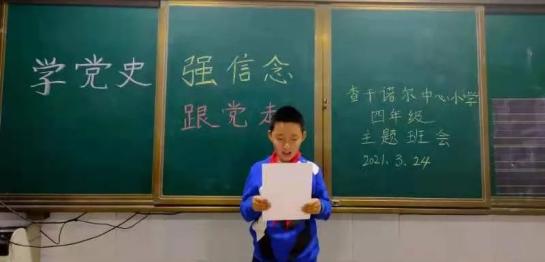 学党史 强信念
跟党走
查干诺尔中心小学
四年级
主题班会
2021.3.24